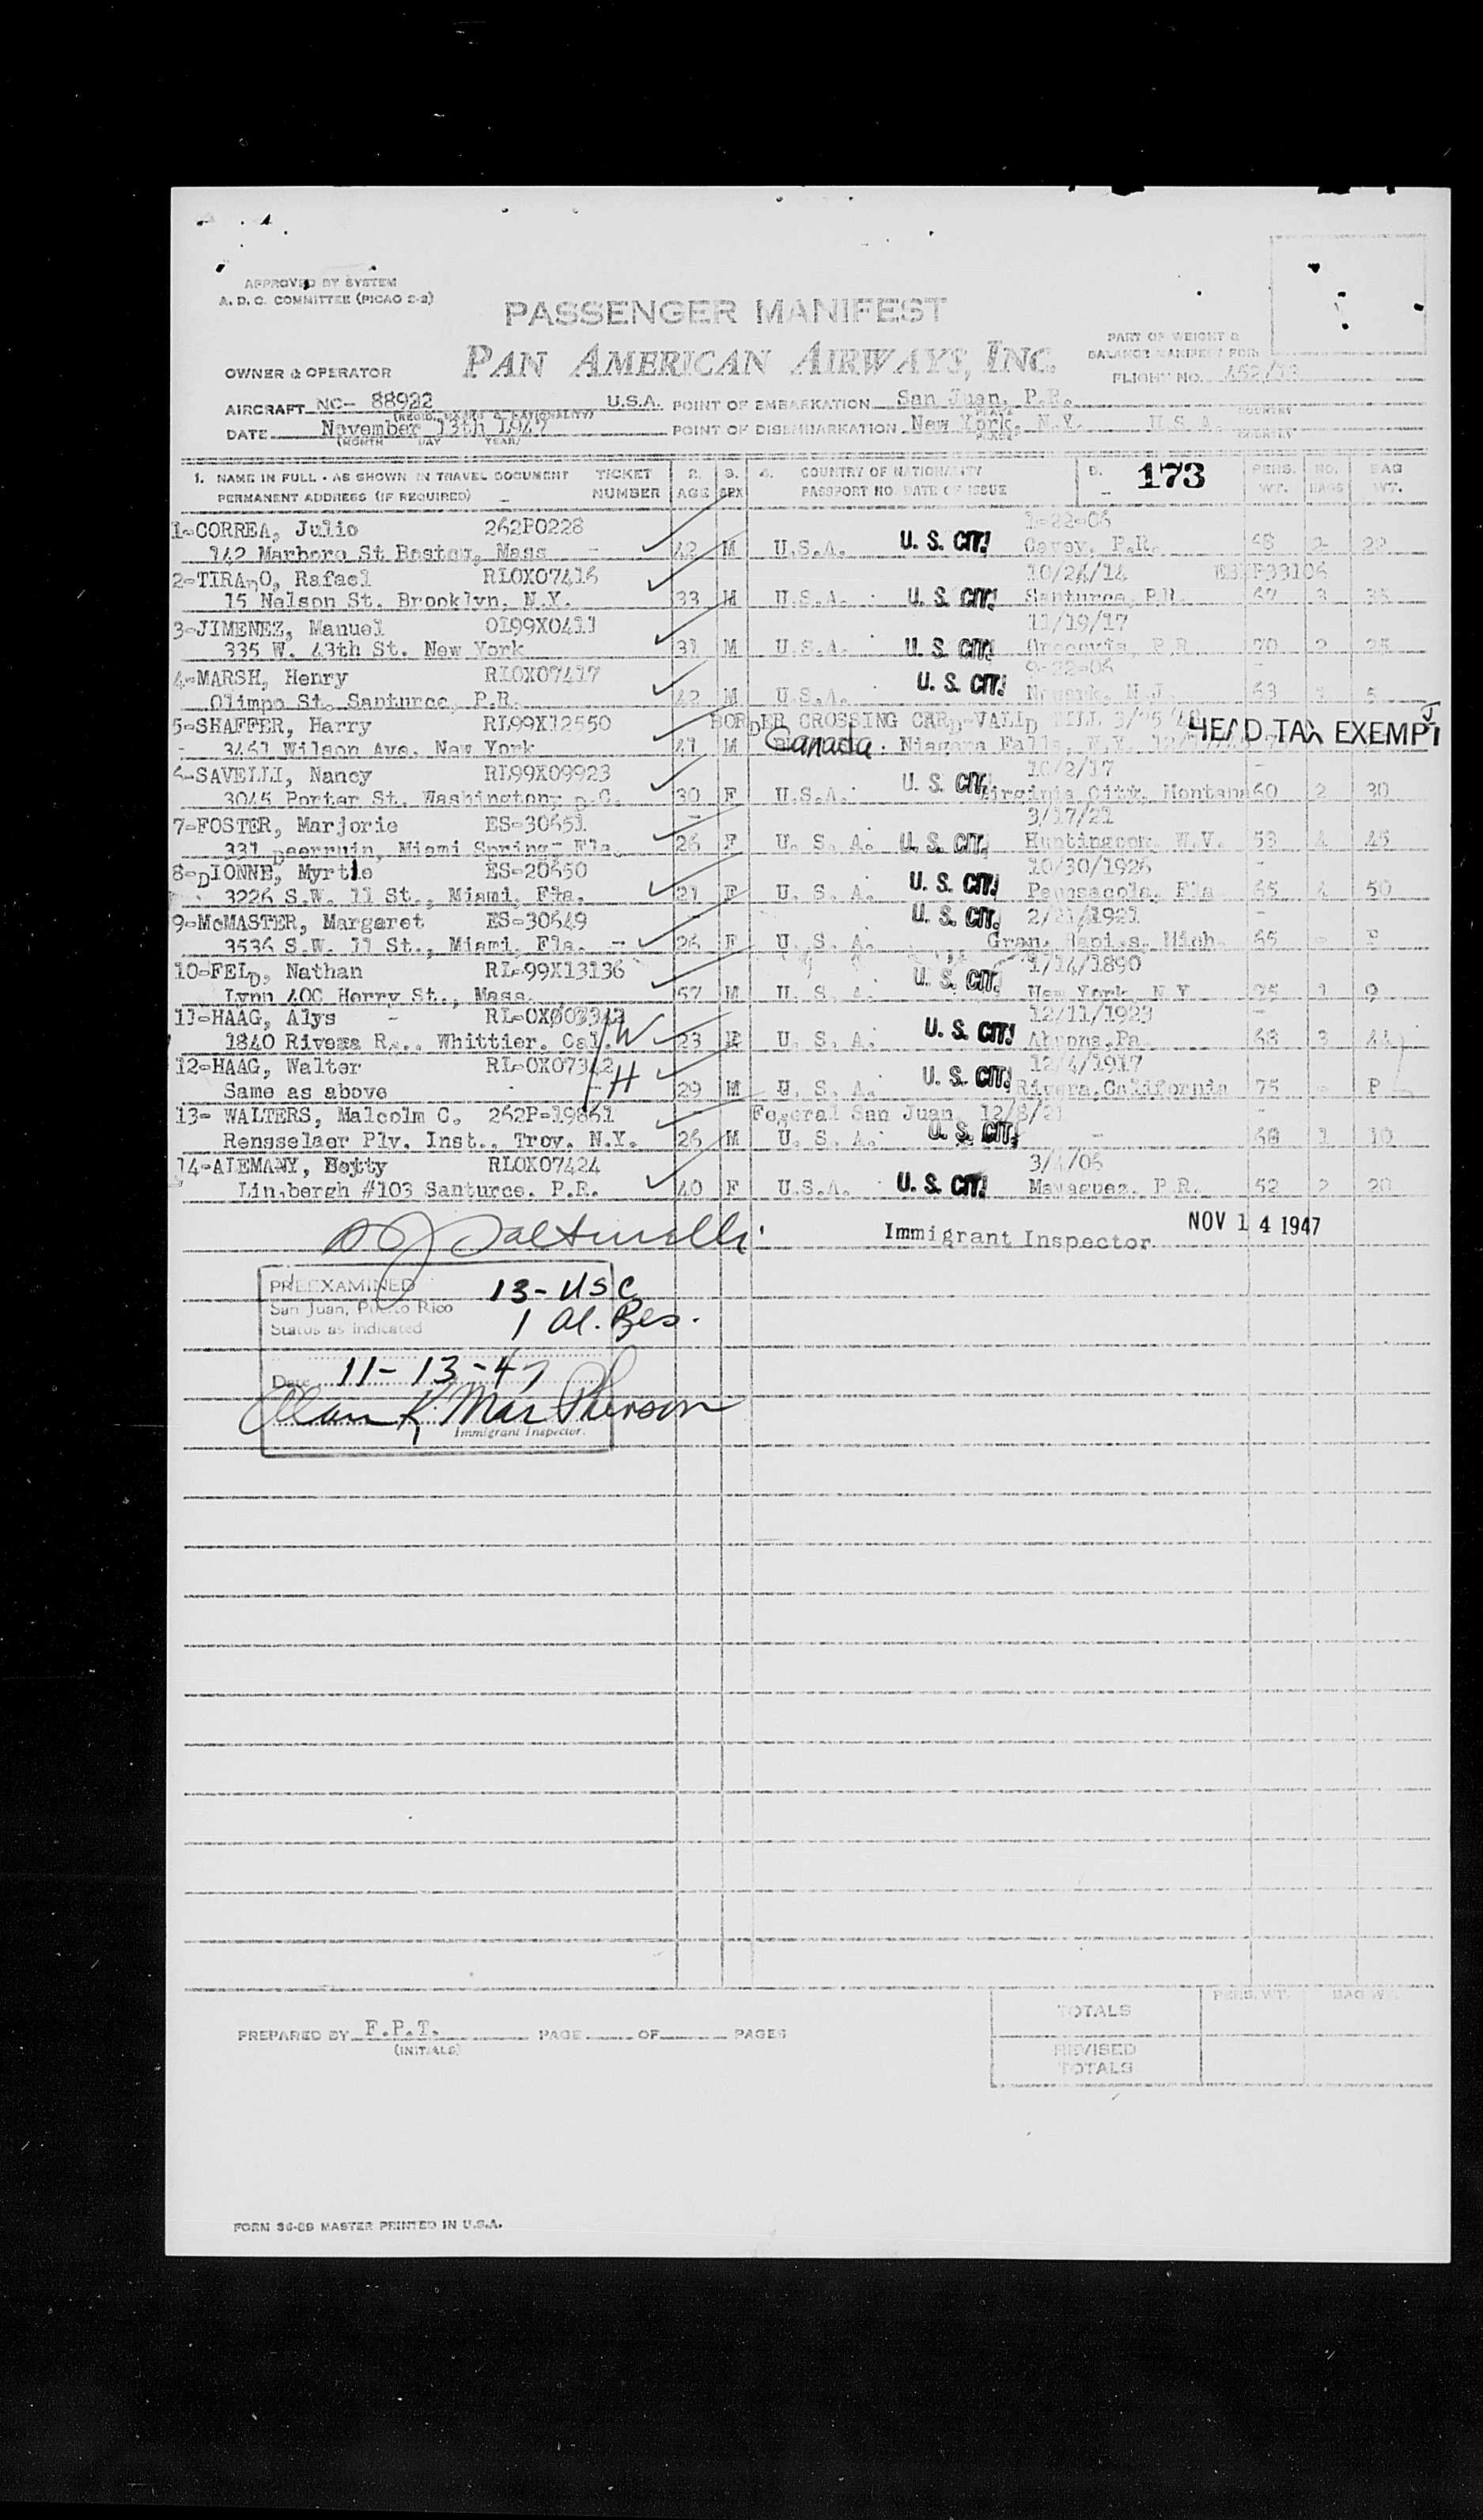 APPROVED BY SYSTEM
A. D. C. COMMITTEE (PICAO 2-2)
PASSENGER MANIFEST
PAN AMERICAN AIRWAYS, INC.
PART OF WEIGHT &
BALANCE MANIFEST FOR
FLIGHT NO. 452/13
OWNER & OPERATOR
AIRCRAFT NC- 88922 U.S.A. POINT OF EMBARKATION San Juan, P.R.
COUNTRY
DATE November 13th 1947 POINT OF DISEMBARKATION New York, N.Y. U.S.A.
(MONTH DAY YEAR) PLACE COUNTRY
1. NAME IN FULL - AS SHOWN IN TRAVEL DOCUMENT TICKET 2. 3. 4. COUNTRY OF NATIONALITY 173 PERS. NO. BAG
PERMANENT ADDRESS (IF REQUIRED) NUMBER AGE SEX PASSPORT NO. DATE OF ISSUE WT. BAGS WT.
1-CORREA, Julio 262P0228 1-22-05
142 Marboro St Boston, Mass 42 M U.S.A. U. S. CIT. P.R. 2
2-TIRADO, Rafael RLOX07416 10/24/14
15 Nelson St. Brooklyn, N.Y. 33 M U.S.A. U. S. CIT. Santurce, P.R. 3 35
3-JIMENEZ, Manuel OI99X0411 11/19/17
335 W. 43th St. New York 31 M U.S.A. U. S. CIT. Orocovis, P.R 70 2 25
4-MARSH, Henry RLOX07417 9-22-05
Olimpo St. Santurce, P.R. 42 M U.S.A. U. S. CIT. Newark, N.J. 63 1 5
5-SHAFFER, Harry RL99X12550 BORDER CROSSING CARD-VALID TILL HEAD TAX EXEMPT
3461 Wilson Ave. New York 41 M Canada. Niagara Falls, N.Y.
6-SAVELLI, Nancy RL99X09923 10/2/17
3045 Porter St. Washington, D.C. 30 F U.S.A. U. S. CIT. Virginia City, Montana 60 2 30
7-FOSTER, Marjorie ES-30651 3/17/21
331 Deerruin, Miami Spring- Fla. 26 F U. S. A. U. S. CIT. Huntingcon, W.V. 53 4 45
8-DIONNE, Myrtle ES-20650 10/30/1926
3226 S.W. 11 St., Miami, Fla. 21 F U. S. A. U. S. CIT. Pennsacola, Fla 65 4 50
9-McMASTER, Margaret ES-30649 U. S. CIT. 2/21/1921
3536 S.W. 11 St., Miami, Fla. - 26 F U. S. A. Gran. Rapi.s, Mich. 65 - P
10-FELD, Nathan RL-99X13136 1/14/1890
Lynn 400 Herry St., Mass. 57 M U. S. A. U. S. CIT. New York, N.Y 1 9
11-HAAG, Alys - 12/11/1923
1840 Rivera R.., Whittier. Cal. W 23 F U. S. A. U. S. CIT. Pa. 68 3 44
12-HAAG, Walter RL-OX07342 12/4/1917
Same as above H 29 M U. S. A. U. S. CIT. Rivera, California 75 - P
13- WALTERS, Malcolm C. 262P-19861 Federal San Juan, 12/8/21
Rensselaer Ply. Inst., Troy. N.Y. 26 M U. S. A. U. S. CIT. - 1 10
14-ALEMANY, Betty RLOX07424
Lin.bergh #103 Santurce. P.R. 40 F U.S.A. U. S. CIT. Mayaguez. P.R. 52 2 20
Immigrant Inspector NOV 14 1947
PREEXAMINED 13-USC
San Juan, Puerto Rico
Status as indicated 1 Al. Res.
Date 11-13-47
Allan K. MacPherson
Immigrant Inspector.
TOTALS PERS. WT. BAG WT.
PREPARED BY F.P.T. PAGE OF PAGES
(INITIALS)
REVISED
TOTALS
FORM 36-89 MASTER PRINTED IN U.S.A.